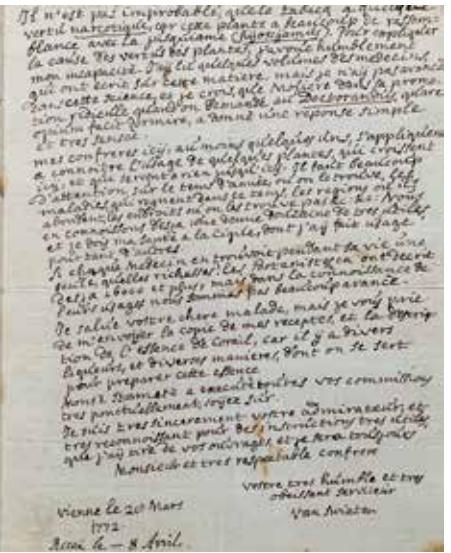 Il n'est pas improbable, que le tabacq a quelque
vertu narcotique, cor cette plante a beaucoup de ressem-
blance avec la jusquiame (hyosijamus). Pour expliquer
la cause des vertus des plantes, j'avoue humblement
mon incapacité. J'ay lu quelques volumes des medecins,
qui ont ecrit sur cette matiere, mais je n'ay pas
dans cette science, et je crois, que Moliere dans sa promo-
tion quand on demande au Doctorandus, quare
opium facit dormire, a donné une reponse simple
et tres sensée.
mes confreres icy, au moins quelques uns, s'appliquent
a connoitre l'usage de quelques plantes, qui croissent
icy, et qui rien jusqu'icy. Il faut beaucoup
d'attention, sur le tems d'année, ou on le trouve, les
maladies qui regnent dans ce tems, les regions ou ils
abondent, les endroits ou on les trouve pas &c. &c. Nous
en connoissons desja une douzaine de tres utiles,
et je dois ma santé a la Cigüe, dont j'ay fait usage
pour tant d'autres.
Si chaque Medecin en trouvoit pendant sa vie une
seule, quelles richesses! les Botanistes en ont decrit
desja et plus, mais dans la connoissance de
leurs usages nous sommes pas beaucoup avancé.
Je salue vostre chere malade, mais je vous prie
de m'envoyer la copie de mes receptes, et la descrip
tion de l'essence de Corail, car il y a divers
liqueurs, et diverses manieres, dont on se sert
pour preparer cette essence
a executé toutes vos commissions
tres ponctuellement, soyez sur.
Je suis tres sincerement vostre admirateur, et
tres reconnoissant pour des instructions tres utiles,
que j'ay tiré de vos ouvrages, et je sera toujours
Monsieur et tres respectable confrere
vostre tres humble et tres
obeissant serviteur
Van Swieten
Vienne le 20 Mars
1772
le – 8 Avril.